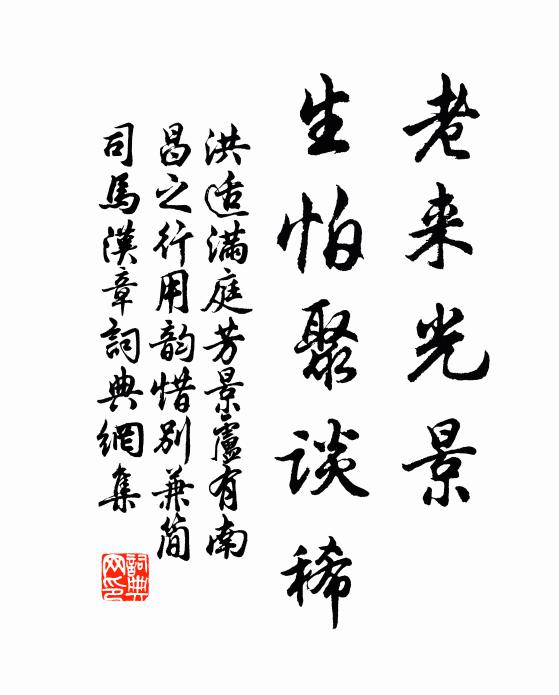 老来光景
生怕聚谈稀
洪适满庭芳景廬有南
昌之行用韵惜别兼简
司馬漢章詞典網集
詞典
网印